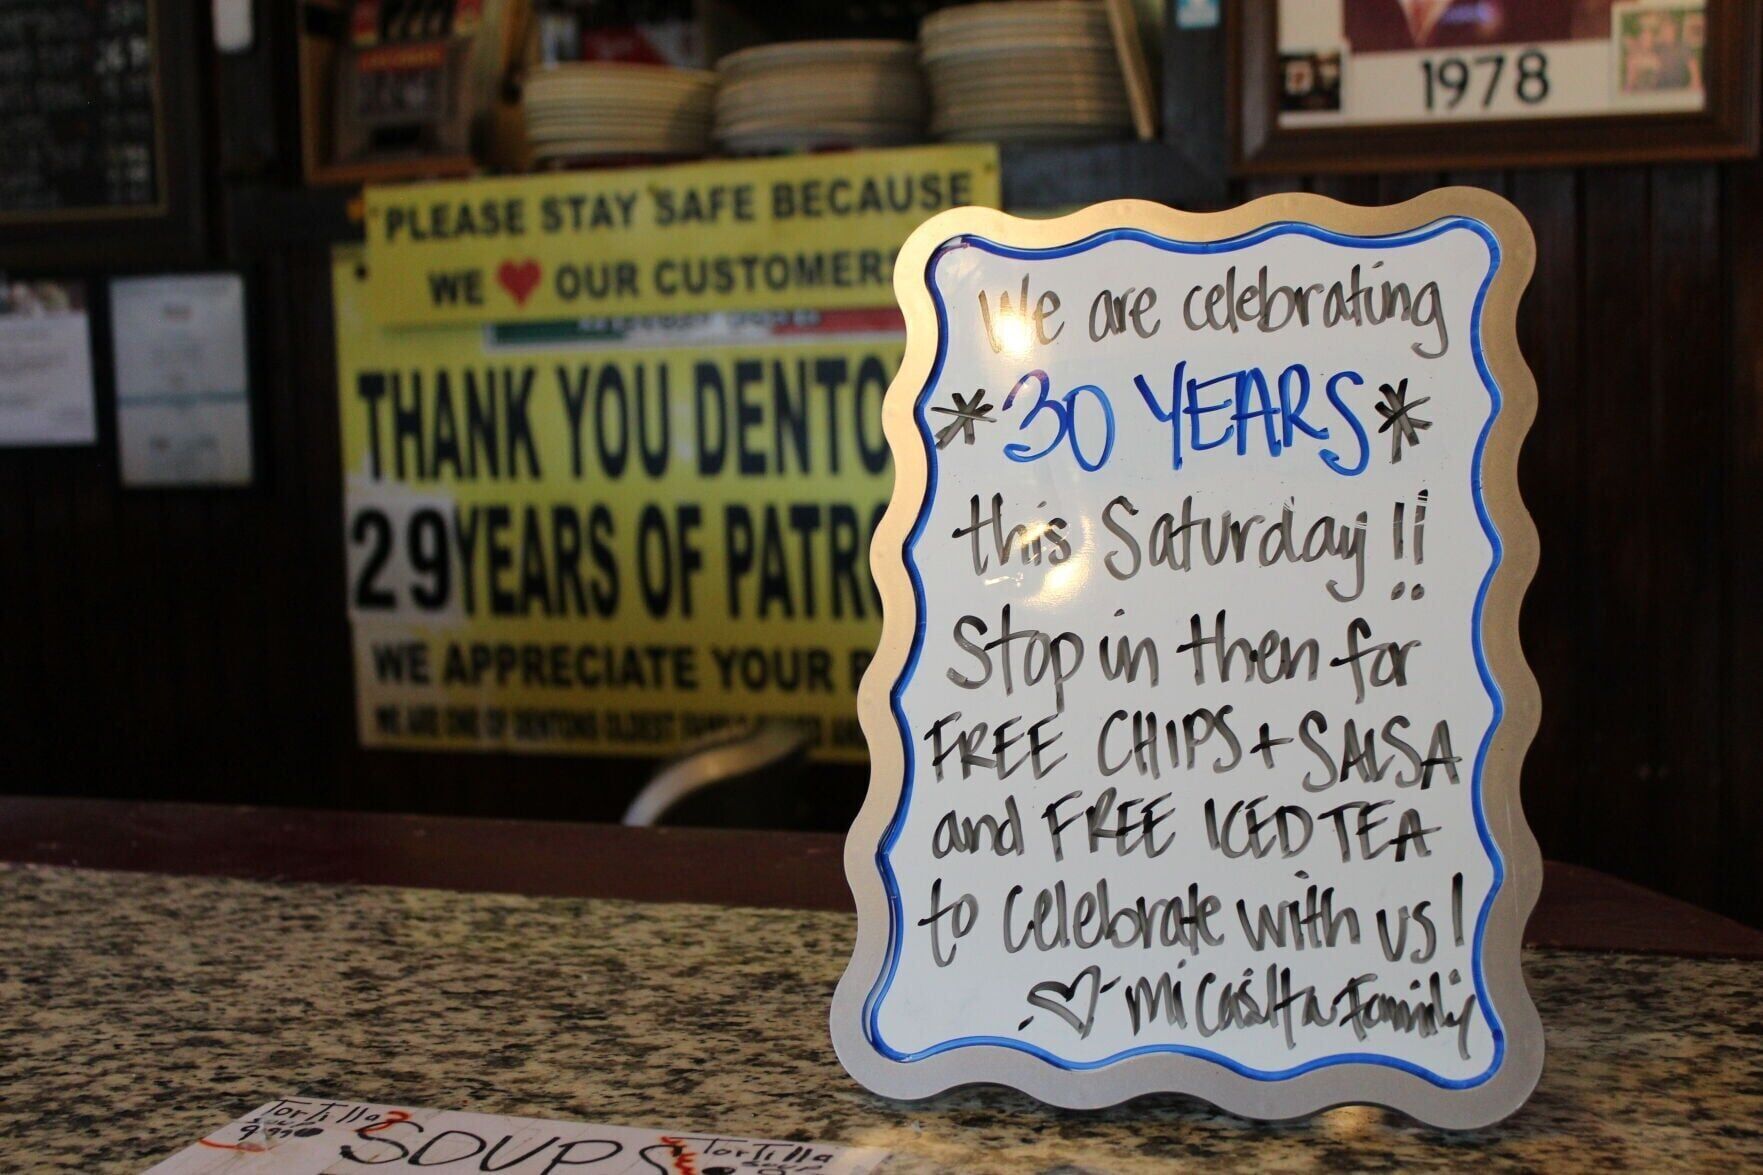 1978
PLEASE STAY SAFE BECAUSE
WE ❤ OUR CUSTOMERS
THANK YOU DENTO
29 YEARS OF PATRO
WE APPRECIATE YOUR
WE ARE ONE OF DENTONS OLDEST FAMILY
We are celebrating
*30 YEARS*
this Saturday!!
Stop in then for
FREE CHIPS + SALSA
and FREE ICED TEA
to celebrate with us!
♡- Mi Casita Family
Tortilla
SOUPS
Tortilla